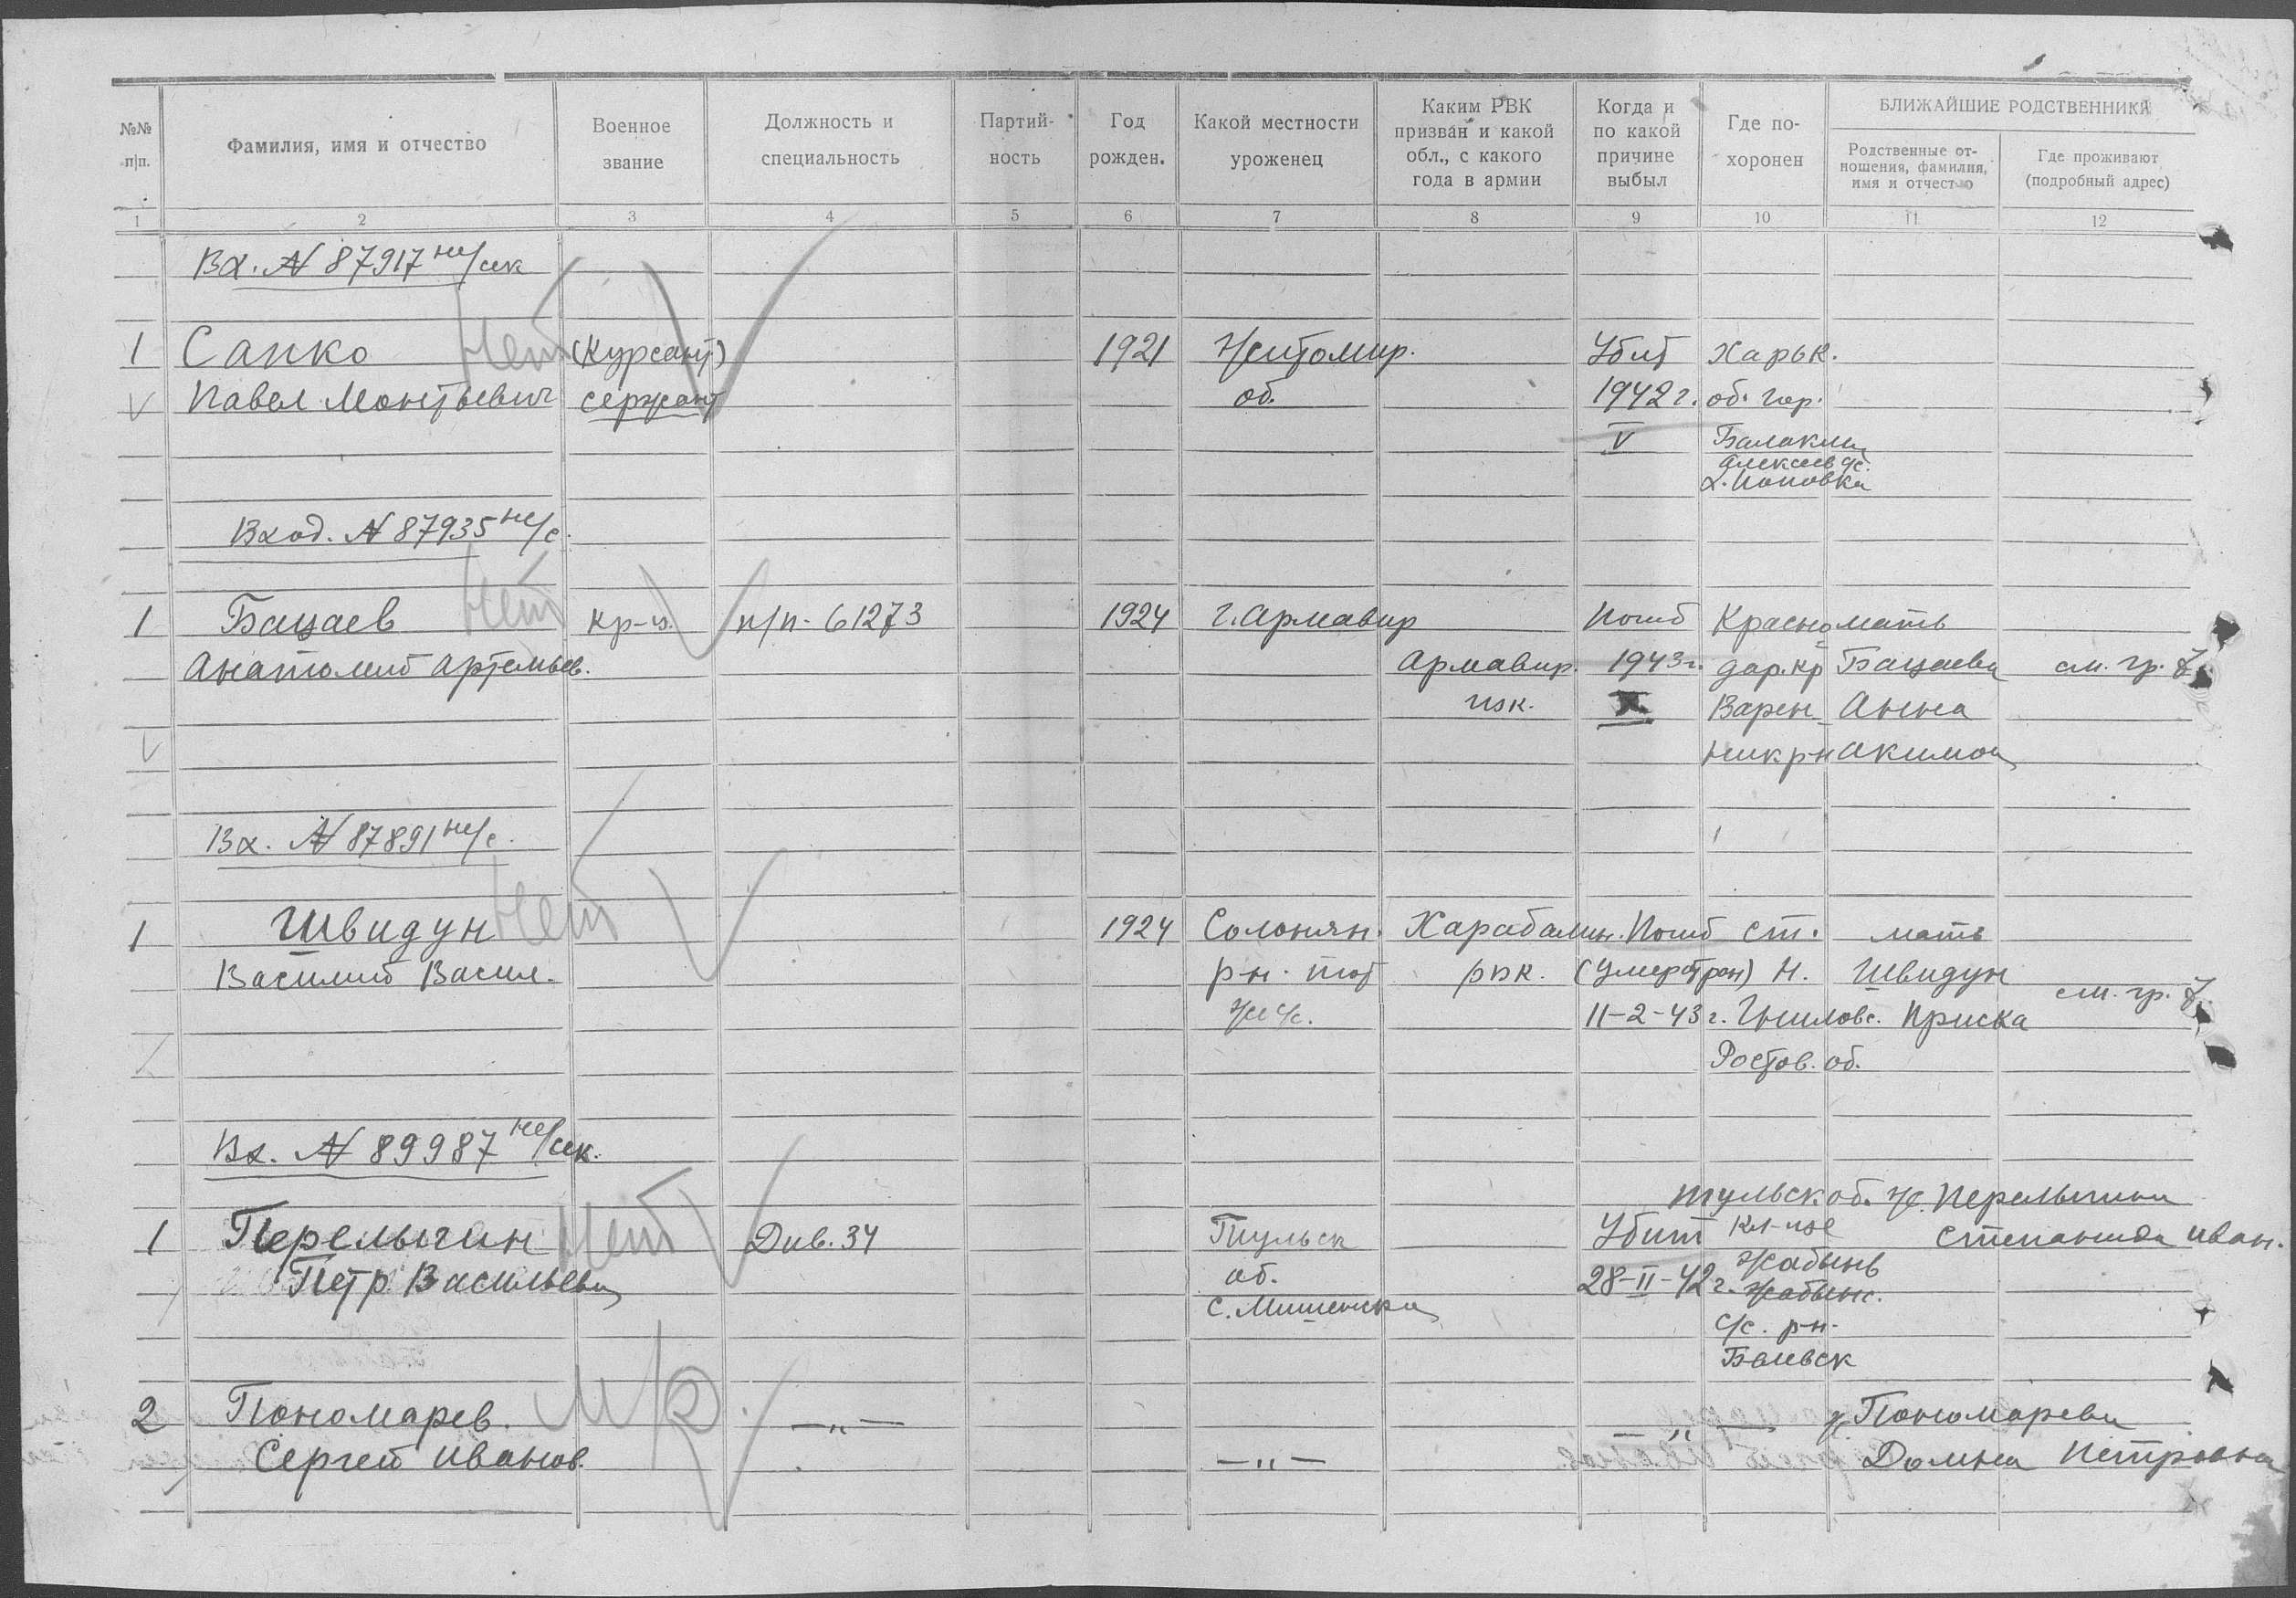 №№ п/п.
Фамилия, имя и отчество
Военное звание
Должность и специальность
Партий-ность
Год рожден.
Какой местности уроженец
Каким РВК призван и какой обл., с какого года в армии
Когда и по какой причине выбыл
Где по-хоронен
БЛИЖАЙШИЕ РОДСТВЕННИКИ
Родственные от-ношения, фамилия, имя и отчество
Где проживают (подробный адрес)
1 2 3 4 5 6 7 8 9 10 11 12
Вх. № 87917 не/сек
Нет
1 Сапко (Курсант) 1921 Житомир. Убит Харьк.
Павел Монтьевич сержант об. 1942 г. об. гор.
V Балаклея
Алексеев с/с.
х. Поповка
Вход. № 87935 не/с.
Нет
1 Бацаев кр-ц. п/п - 61273 1924 г. Армавир Погиб Красно мать
Анатолий Артемьев. Армавир. 1943 г. дар. кр Бацаева см. гр. 7
X Варен Анна
ник р-н Акимов
Вх. № 87891 не/с.
Нет
1 Швидун 1924 Солонян. Карабалин. Погиб ст. мать
Василий Васил. р-н. рвк. (умер от ран) Н. Швидун см. гр. 7
11-2-43 г. Гниловс. Приска
Ростов. об.
Вх. № 89987 не/сек.
Тульск. об. ж. Перелыгина
Нет
1 Перелыгин Див. 34 Тульск Убит кл-ще Степанида Иван.
Петр Васильевич об. 28-II-42 г. Жабынь
с. Мишенска Жабынс.
с/с. р-н.
Белевск
М/Р
2 Пономарев. — " — — " — ж. Пономарева
Сергей Иванов. — " — Домна Петровна